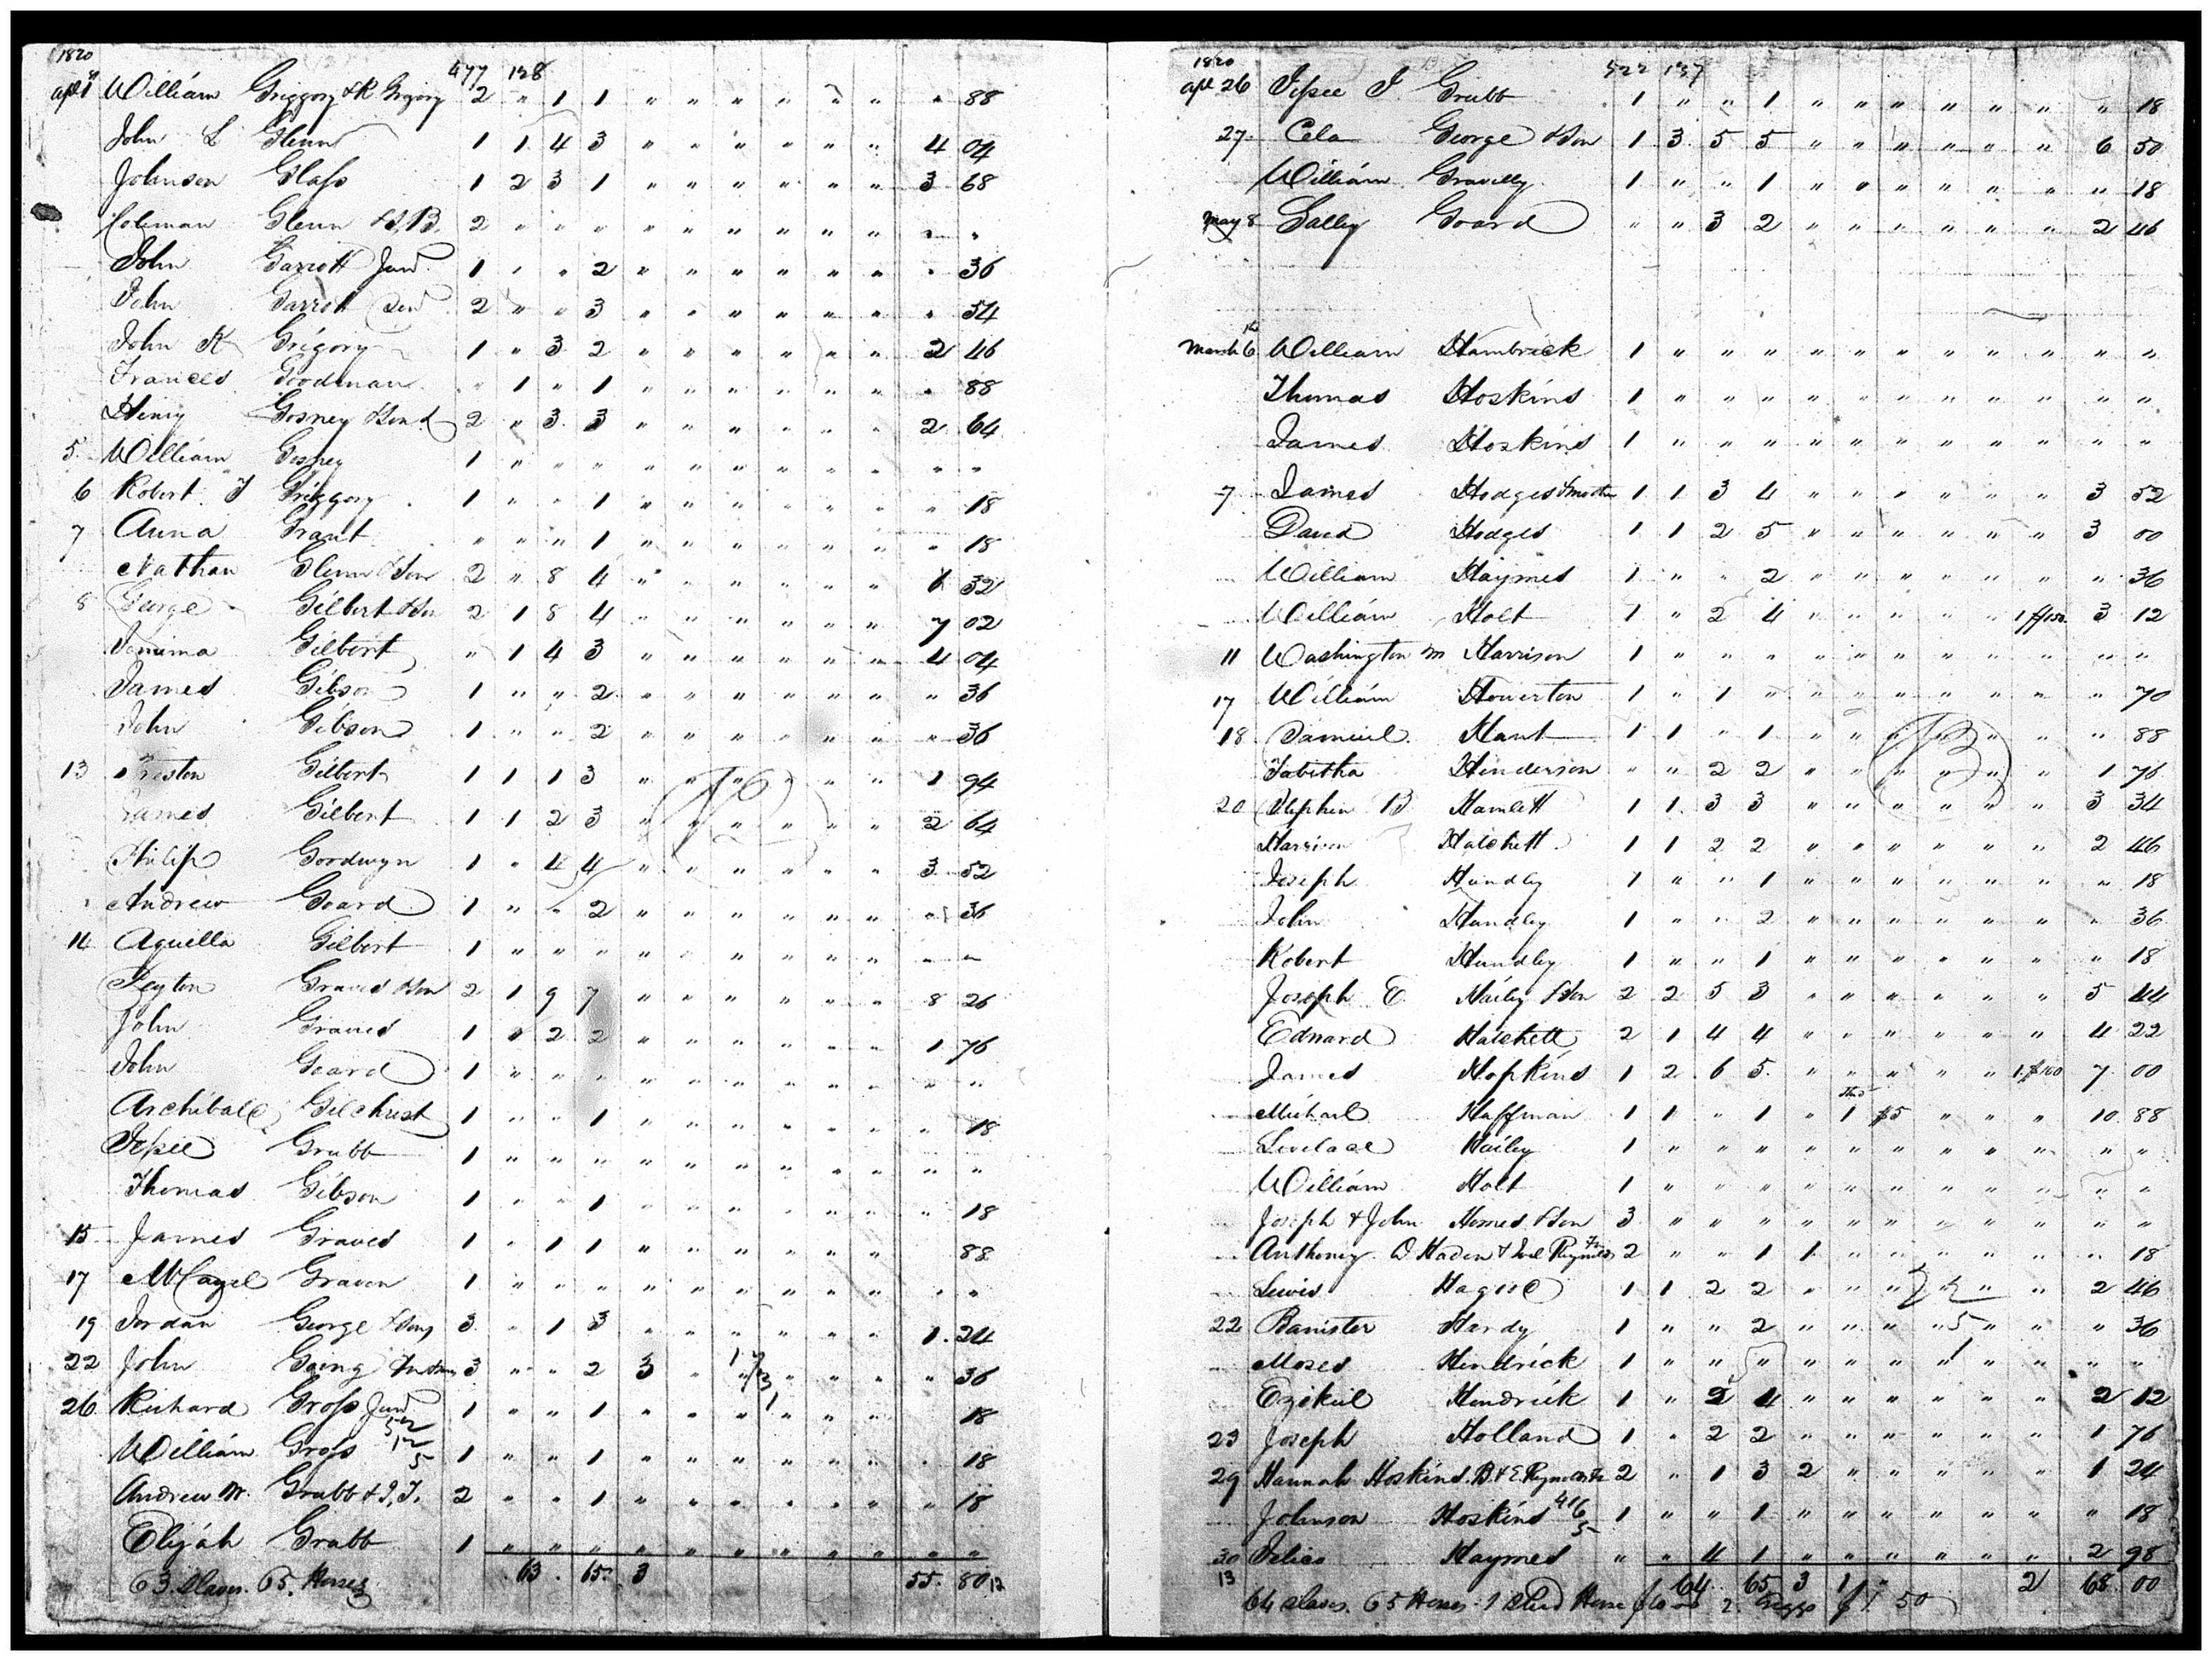 1820 477 128
apl 1st William Griggory & R Grigory 2 " 1 1 " " " " " " " 88
John L Glenn 1 1 4 3 " " " " " " 4 04
Johnson Glass 1 2 3 1 " " " " " " 3 68
Coleman Glenn & S, B, 2 " " " " " " " " " " "
John Garrott Junr 1 " " 2 " " " " " " " 36
John Garrott Senr 2 " " 3 " " " " " " " 54
John K Grigory 1 " 3 2 " " " " " " 2 46
Frances Goodman " 1 " 1 " " " " " " " 88
Henry Gosney & Son 2 " 3 3 " " " " " " 2 64
5 William Gosney 1 " " " " " " " " " " "
6 Robert J Griggory 1 " " 1 " " " " " " " 18
7 Anna Grant " " " 1 " " " " " " " 18
Nathan Glenn & Son 2 " 8 4 " " " " " " 6 32
8 George Gilbert & Son 2 1 8 4 " " " " " " 7 02
Jemima Gilbert " 1 4 3 " " " " " " 4 04
James Gibson 1 " " 2 " " " " " " " 36
John Gibson 1 " " 2 " " " " " " " 36
13 Preston Gilbert 1 1 1 3 " " " " " " 1 94
James Gilbert 1 1 2 3 " " " " " " 2 64
Philip Gordwyn 1 " 4 4 " " " " " " 3 52
Andrew Goard 1 " " 2 " " " " " " " 36
14 Aquella Gilbert 1 " " " " " " " " " " "
Peyton Graves & Son 2 1 9 7 " " " " " " 8 26
John Graves 1 " 2 2 " " " " " " 1 76
John Goard 1 " " " " " " " " " " "
Archibald Gilchrist 1 " " 1 " " " " " " " 18
Jesse Grubb 1 " " " " " " " " " " "
Thomas Gibson 1 " " 1 " " " " " " " 18
15 James Graves 1 " 1 1 " " " " " " 88
17 McCagel Graven 1 " " " " " " " " " " "
19 Jordan George & Sons 3 " 1 3 " " " " " " 1 24
22 John Goeng 3 " " 2 3 " " " " " " 36
26 Richard Gross Junr 1 " " 1 " " " " " " 18
William Gross 1 " " 1 " " " " " " " 18
Andrew W. Grubb & J, J, 2 " " 1 " " " " " " " 18
Elijah Grubb 1 " " " " " " " " " " "
63 65 3 55 80
63 Slaves. 65. Horses
1820 522 137
apl 26 Jesse J Grubb 1 " " 1 " " " " " " " 18
27 Cela George & Son 1 3 5 5 " " " " " " 6 50
William Gravilly 1 " " 1 " " " " " " " 18
May 8 Salley Goard " " 3 2 " " " " " " 2 46
March 6th William Hambrick 1 " " " " " " " " " " "
Thomas Hoskins 1 " " " " " " " " " " "
James Hoskins 1 " " " " " " " " " " "
7 James Hodges 1 1 3 4 " " " " " " 3 52
David Hodges 1 1 2 5 " " " " " " 3 00
William Haymes 1 " " 2 " " " " " " " 36
William Holt 1 " 2 4 " " " " " 1 $150 3 12
11 Washington M Harrison 1 " " " " " " " " " " "
17 William Howerton 1 " 1 " " " " " " " " 70
18 Samuel Hunt 1 1 " 1 " " " " " " " 88
Tabitha Henderson " " 2 2 " " " " " " 1 76
20 Stephen B Hamlett 1 1 3 3 " " " " " " 3 34
Harrison Hatchett 1 1 2 2 " " " " " " 2 46
Joseph Hundley 1 " " 1 " " " " " " " 18
John Hundley 1 " " 2 " " " " " " " 36
Robert Hundley 1 " " 1 " " " " " " " 18
Joseph E Hailey & Son 2 2 5 3 " " " " " " 5 44
Edward Hatchett 2 1 4 4 " " " " " " 4 22
James Hopkins 1 2 6 5 " " " " " 1 $100 7 00
Michael Haffman 1 1 " 1 " Stud 1 $5 " " " 10 88
Lovelace Hailey 1 " " " " " " " " " " "
William Holt 1 " " " " " " " " " " "
Joseph & John Homes & Son 3 " " " " " " " " " " "
Anthoney D Haden 2 " " 1 1 " " " " " " 18
Lewis Hagood 1 1 2 2 " " " " " " 2 46
22 Banister Hardy 1 " " 2 " " " " " " " 36
Moses Hendrick 1 " " " " " " " " " " "
Ezekiel Hendrick 1 " 2 4 " " " " " " 2 12
23 Joseph Holland 1 " 2 2 " " " " " " 1 76
29 Hannah Hoskins. B. & E Reynolds 2 " 1 3 2 " " " " " 1 24
Johnson Hoskins 1 " " 1 " " " " " " " 18
30 Haymes " " 4 1 " " " " " " 2 98
64 65 3 1 2 68 00
64 Slaves. 65 Horses 1 Stud Horse